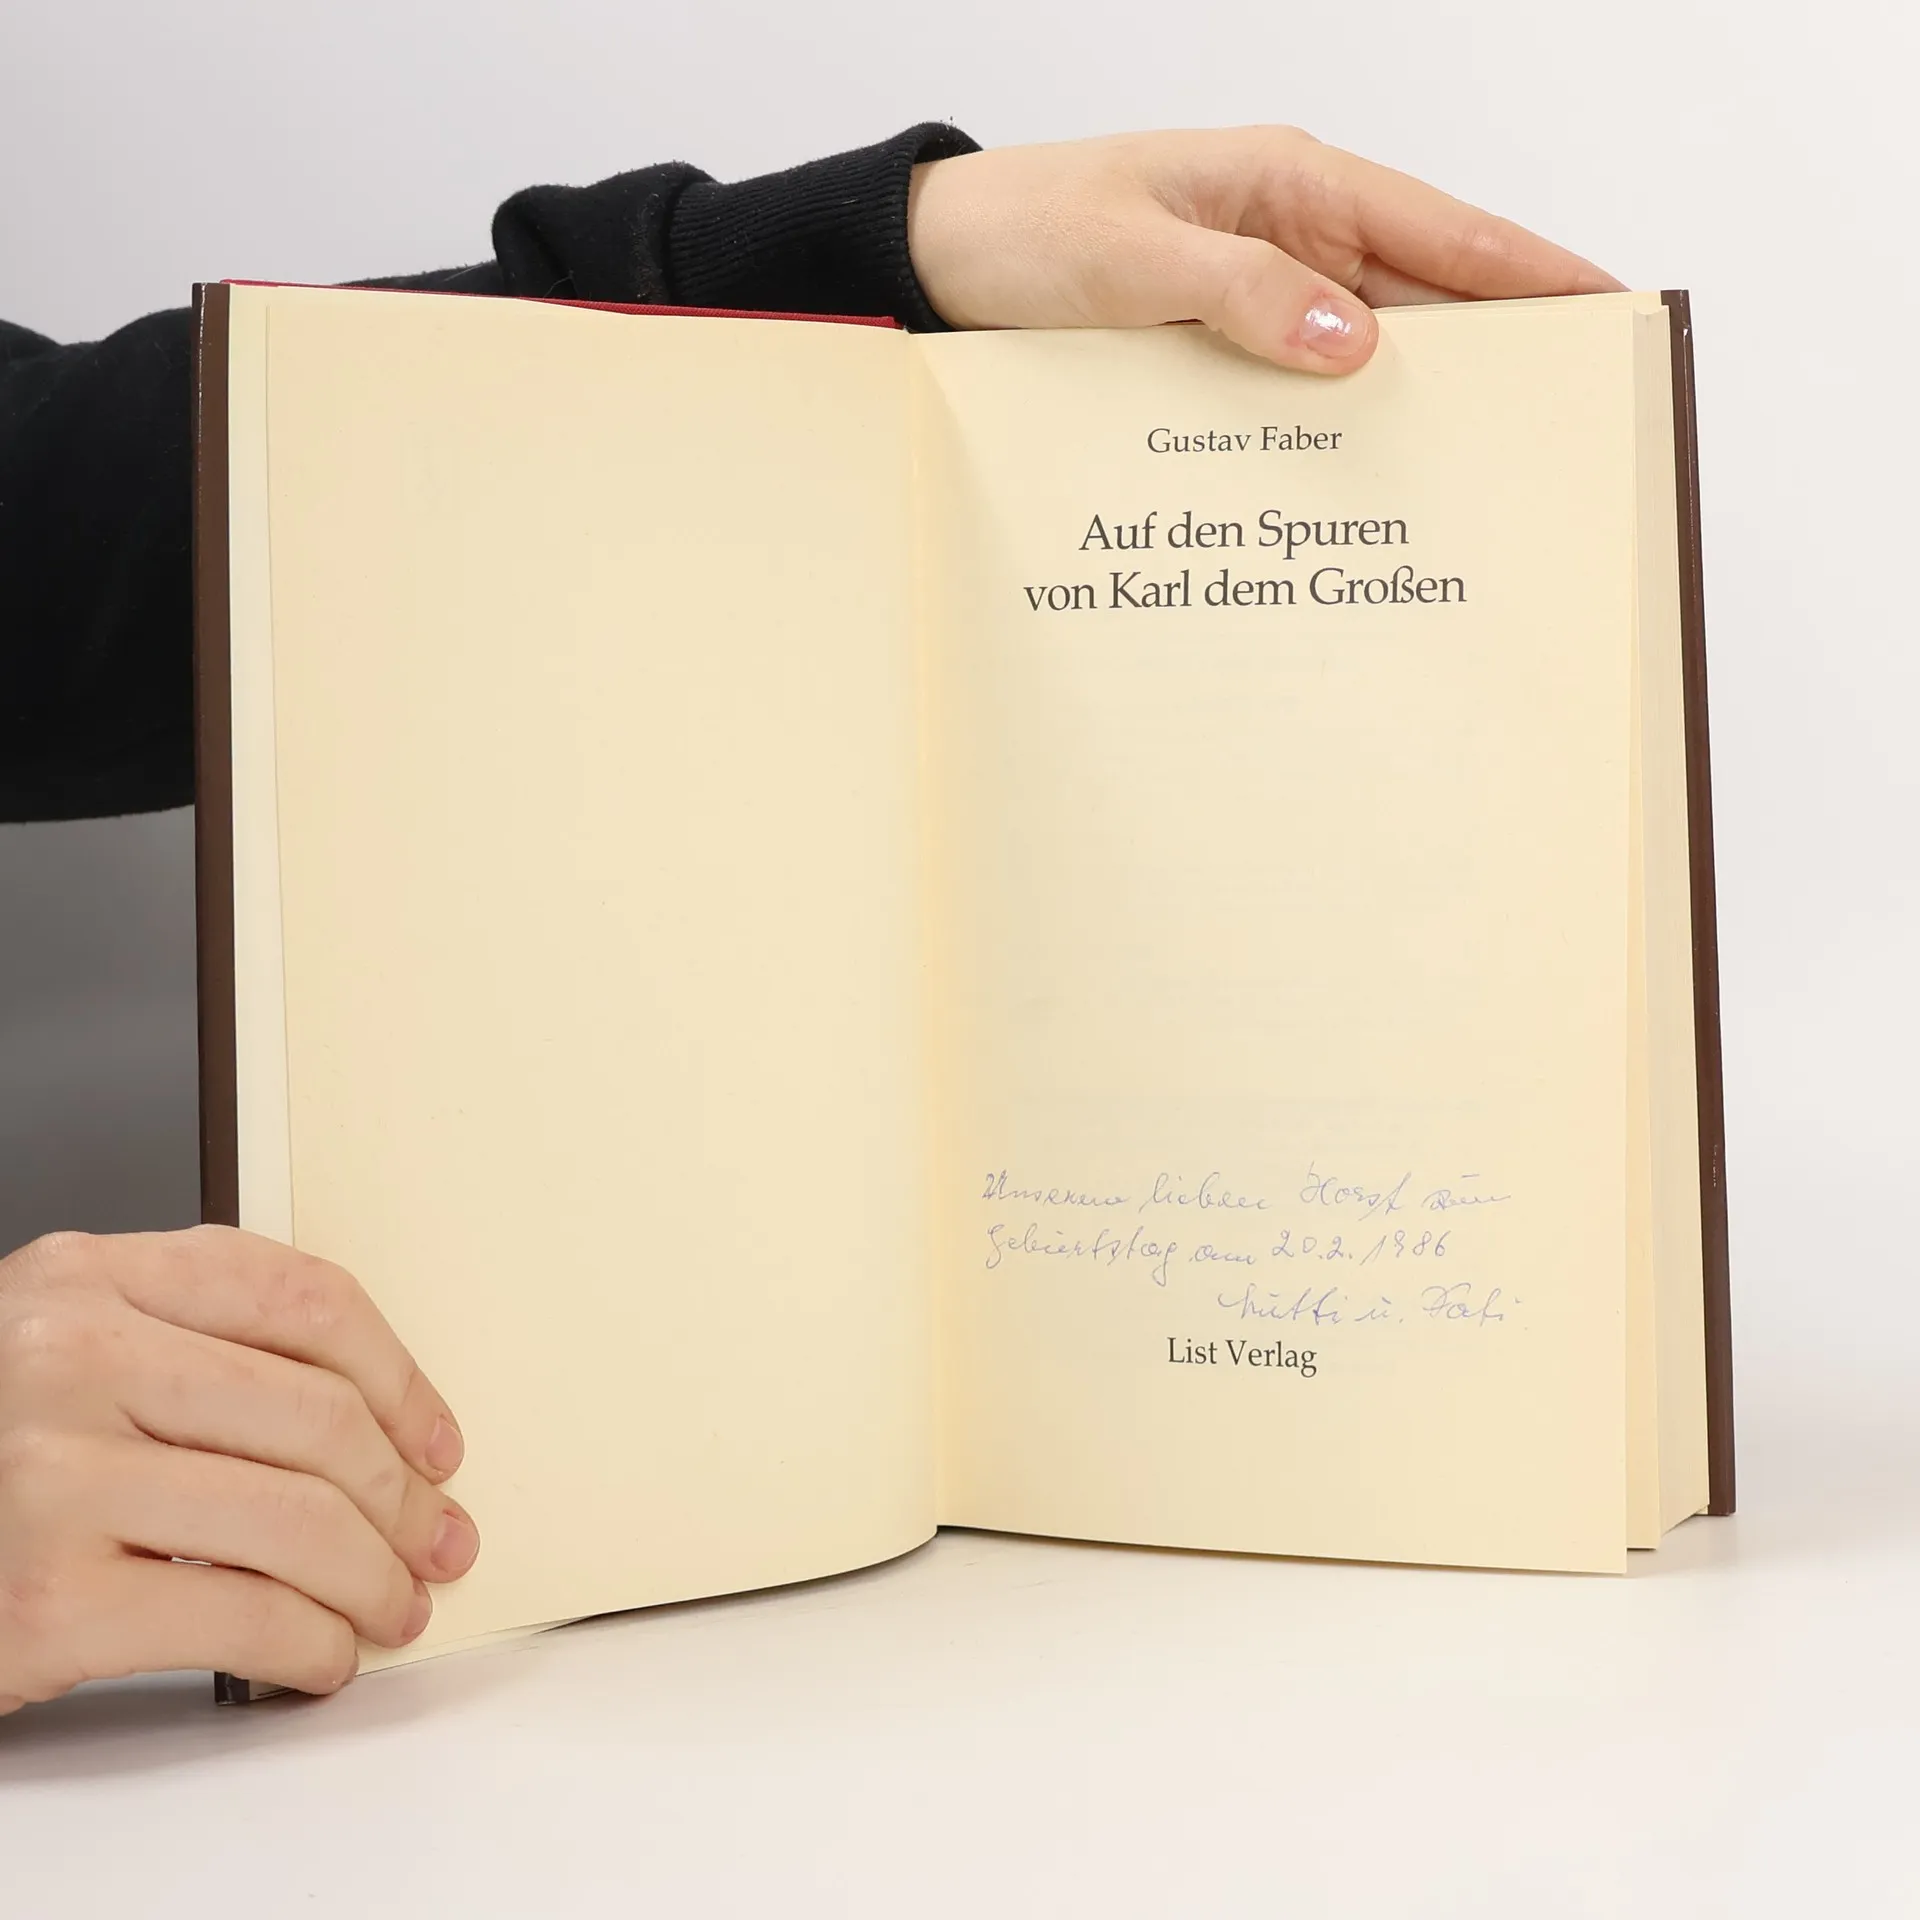 Gustav Faber
Auf den Spuren
von Karl dem Großen
Unserem lieben Horst zum
Geburtstag am 20.2.1986
Mutti u. Vati
List Verlag